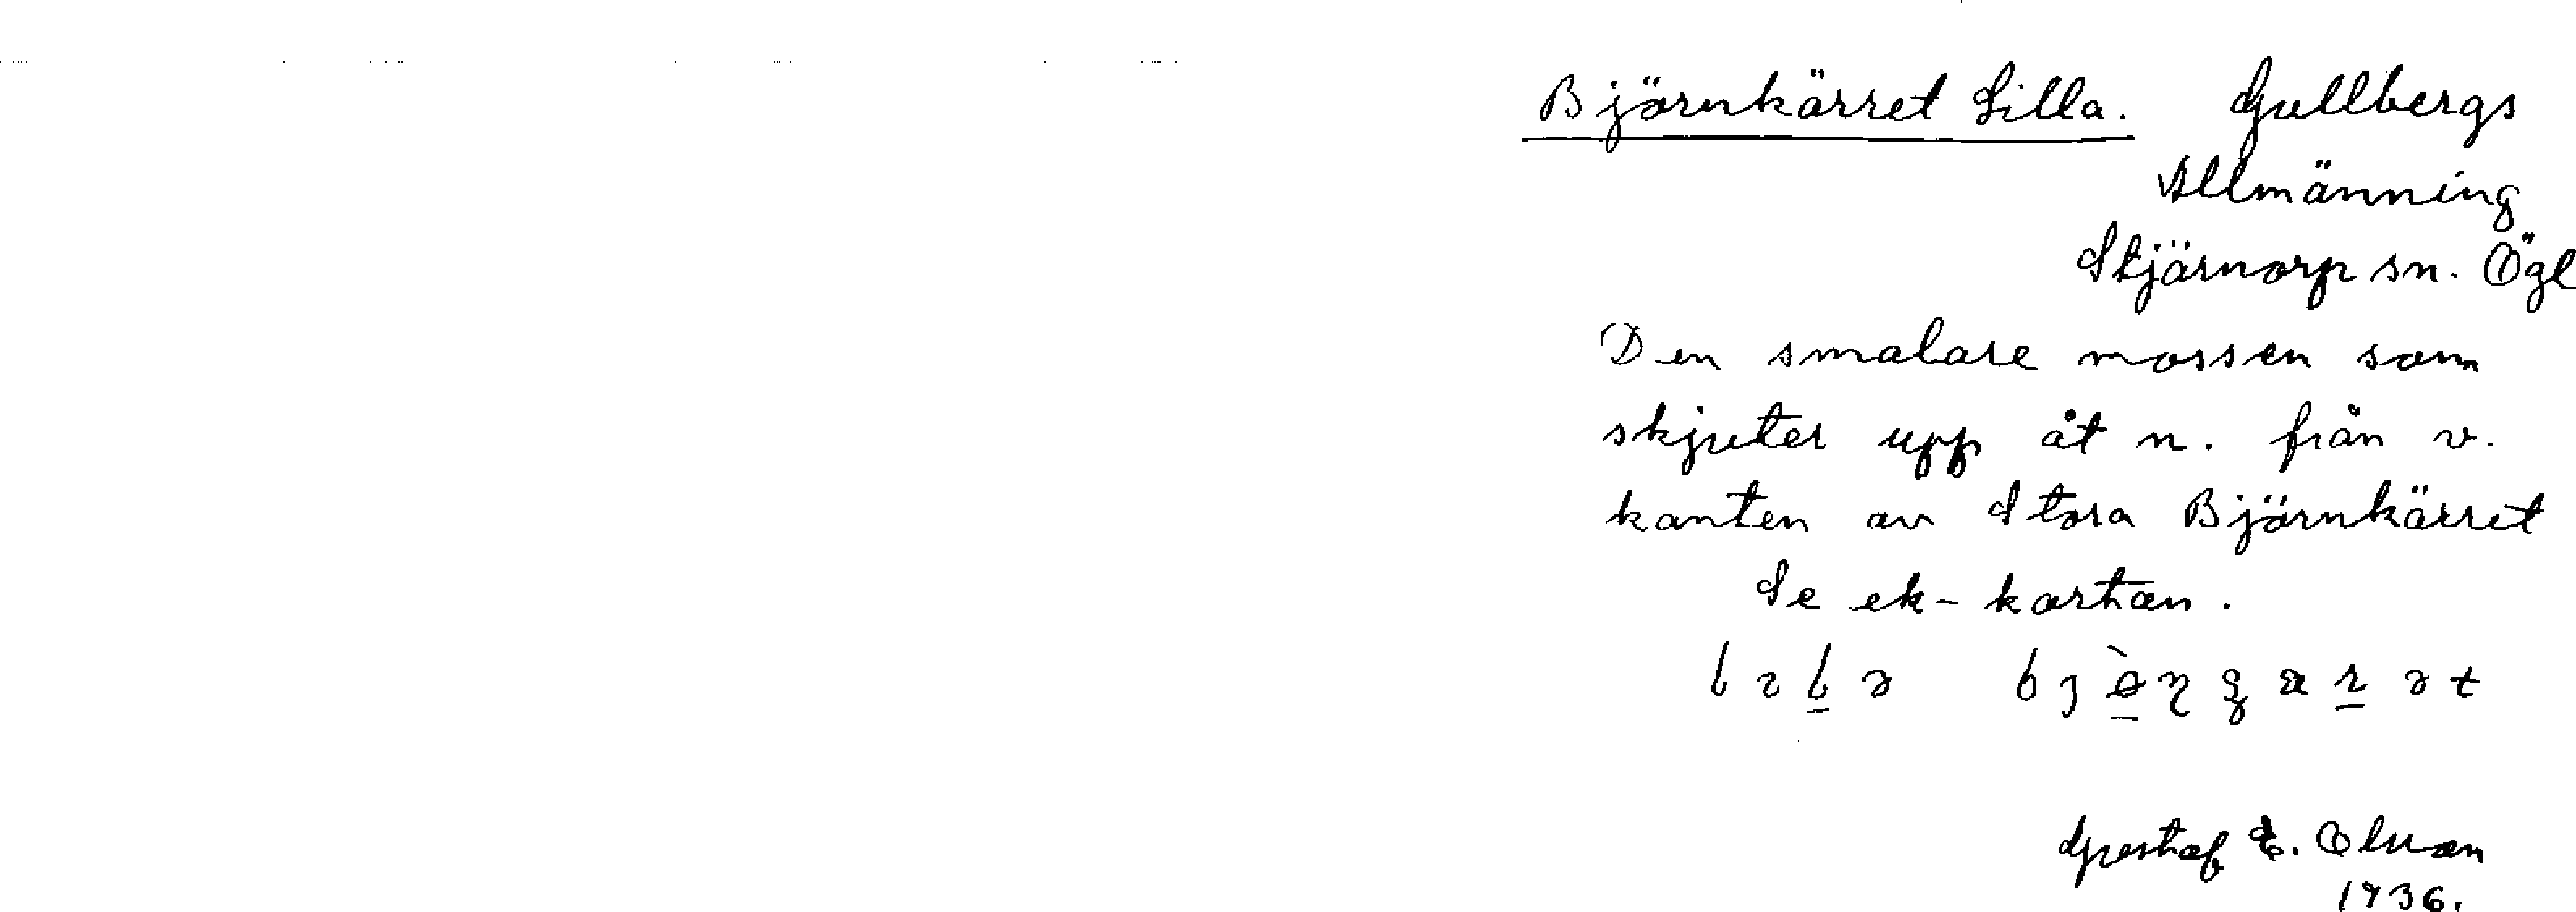 Björnkärret Lilla. Gullbergs
Allmänning
Stjärnorp sn. Ögl
Den smalare mossen som
skjuter upp åt n. från v.
kanten av Stora Björnkärret
Se ek-kartan.
Gustaf E. Olsson
1936.